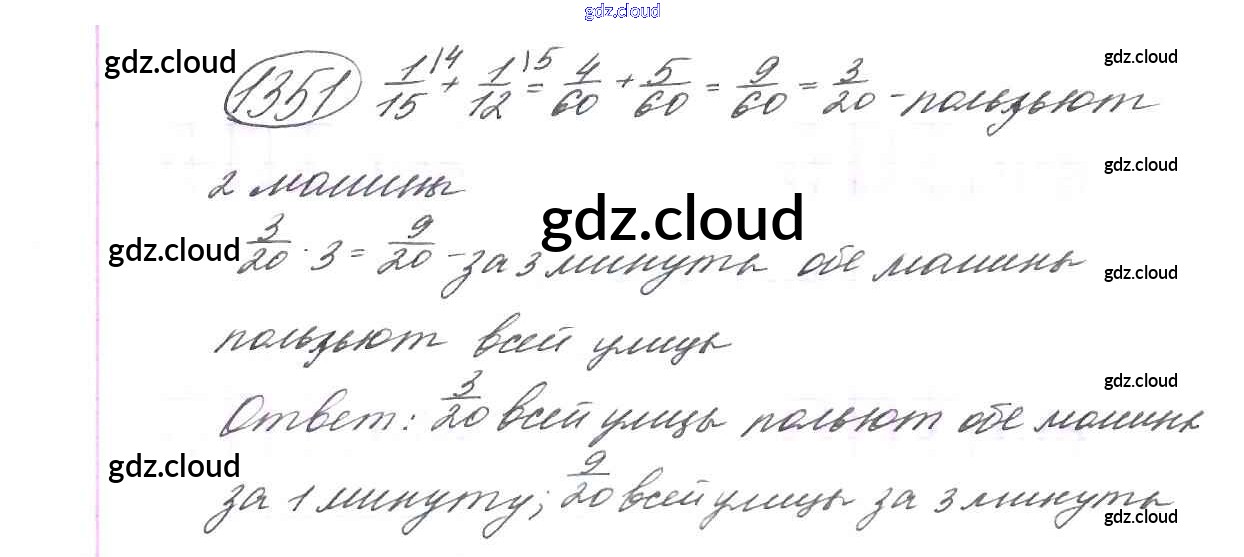 gdz.cloud
gdz.cloud
1351 1/15 \4 + 1/12 \5 = 4/60 + 5/60 = 9/60 = 3/20 - пользуют
gdz.cloud
gdz.cloud
2 машины
gdz.cloud
gdz.cloud
3/20 · 3 = 9/20 - за 3 минуты обе машины
gdz.cloud
пользуют всей улицы
gdz.cloud
Ответ: 3/20 всей улицы польют обе машины
gdz.cloud
за 1 минуту; 9/20 всей улицы за 3 минуты
gdz.cloud